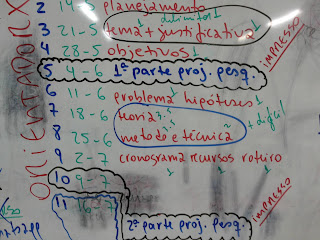 ORIENTADOR X
2 14-5 planejamento
delimitar 1
3 21-5 tema + justificativa 1
4 28-5 objetivos 1
impresso
5 4-6 1ª parte proj. pesq.
6 11-6 problema 1 hipóteses 1
7 18-6 teoria 2.5
+ difícil
8 25-6 metodo e técnica 2
9 2-7 cronograma recursos roteiro
1 1 1
10 9-7
impresso
11 16-7 2ª parte proj. pesq.